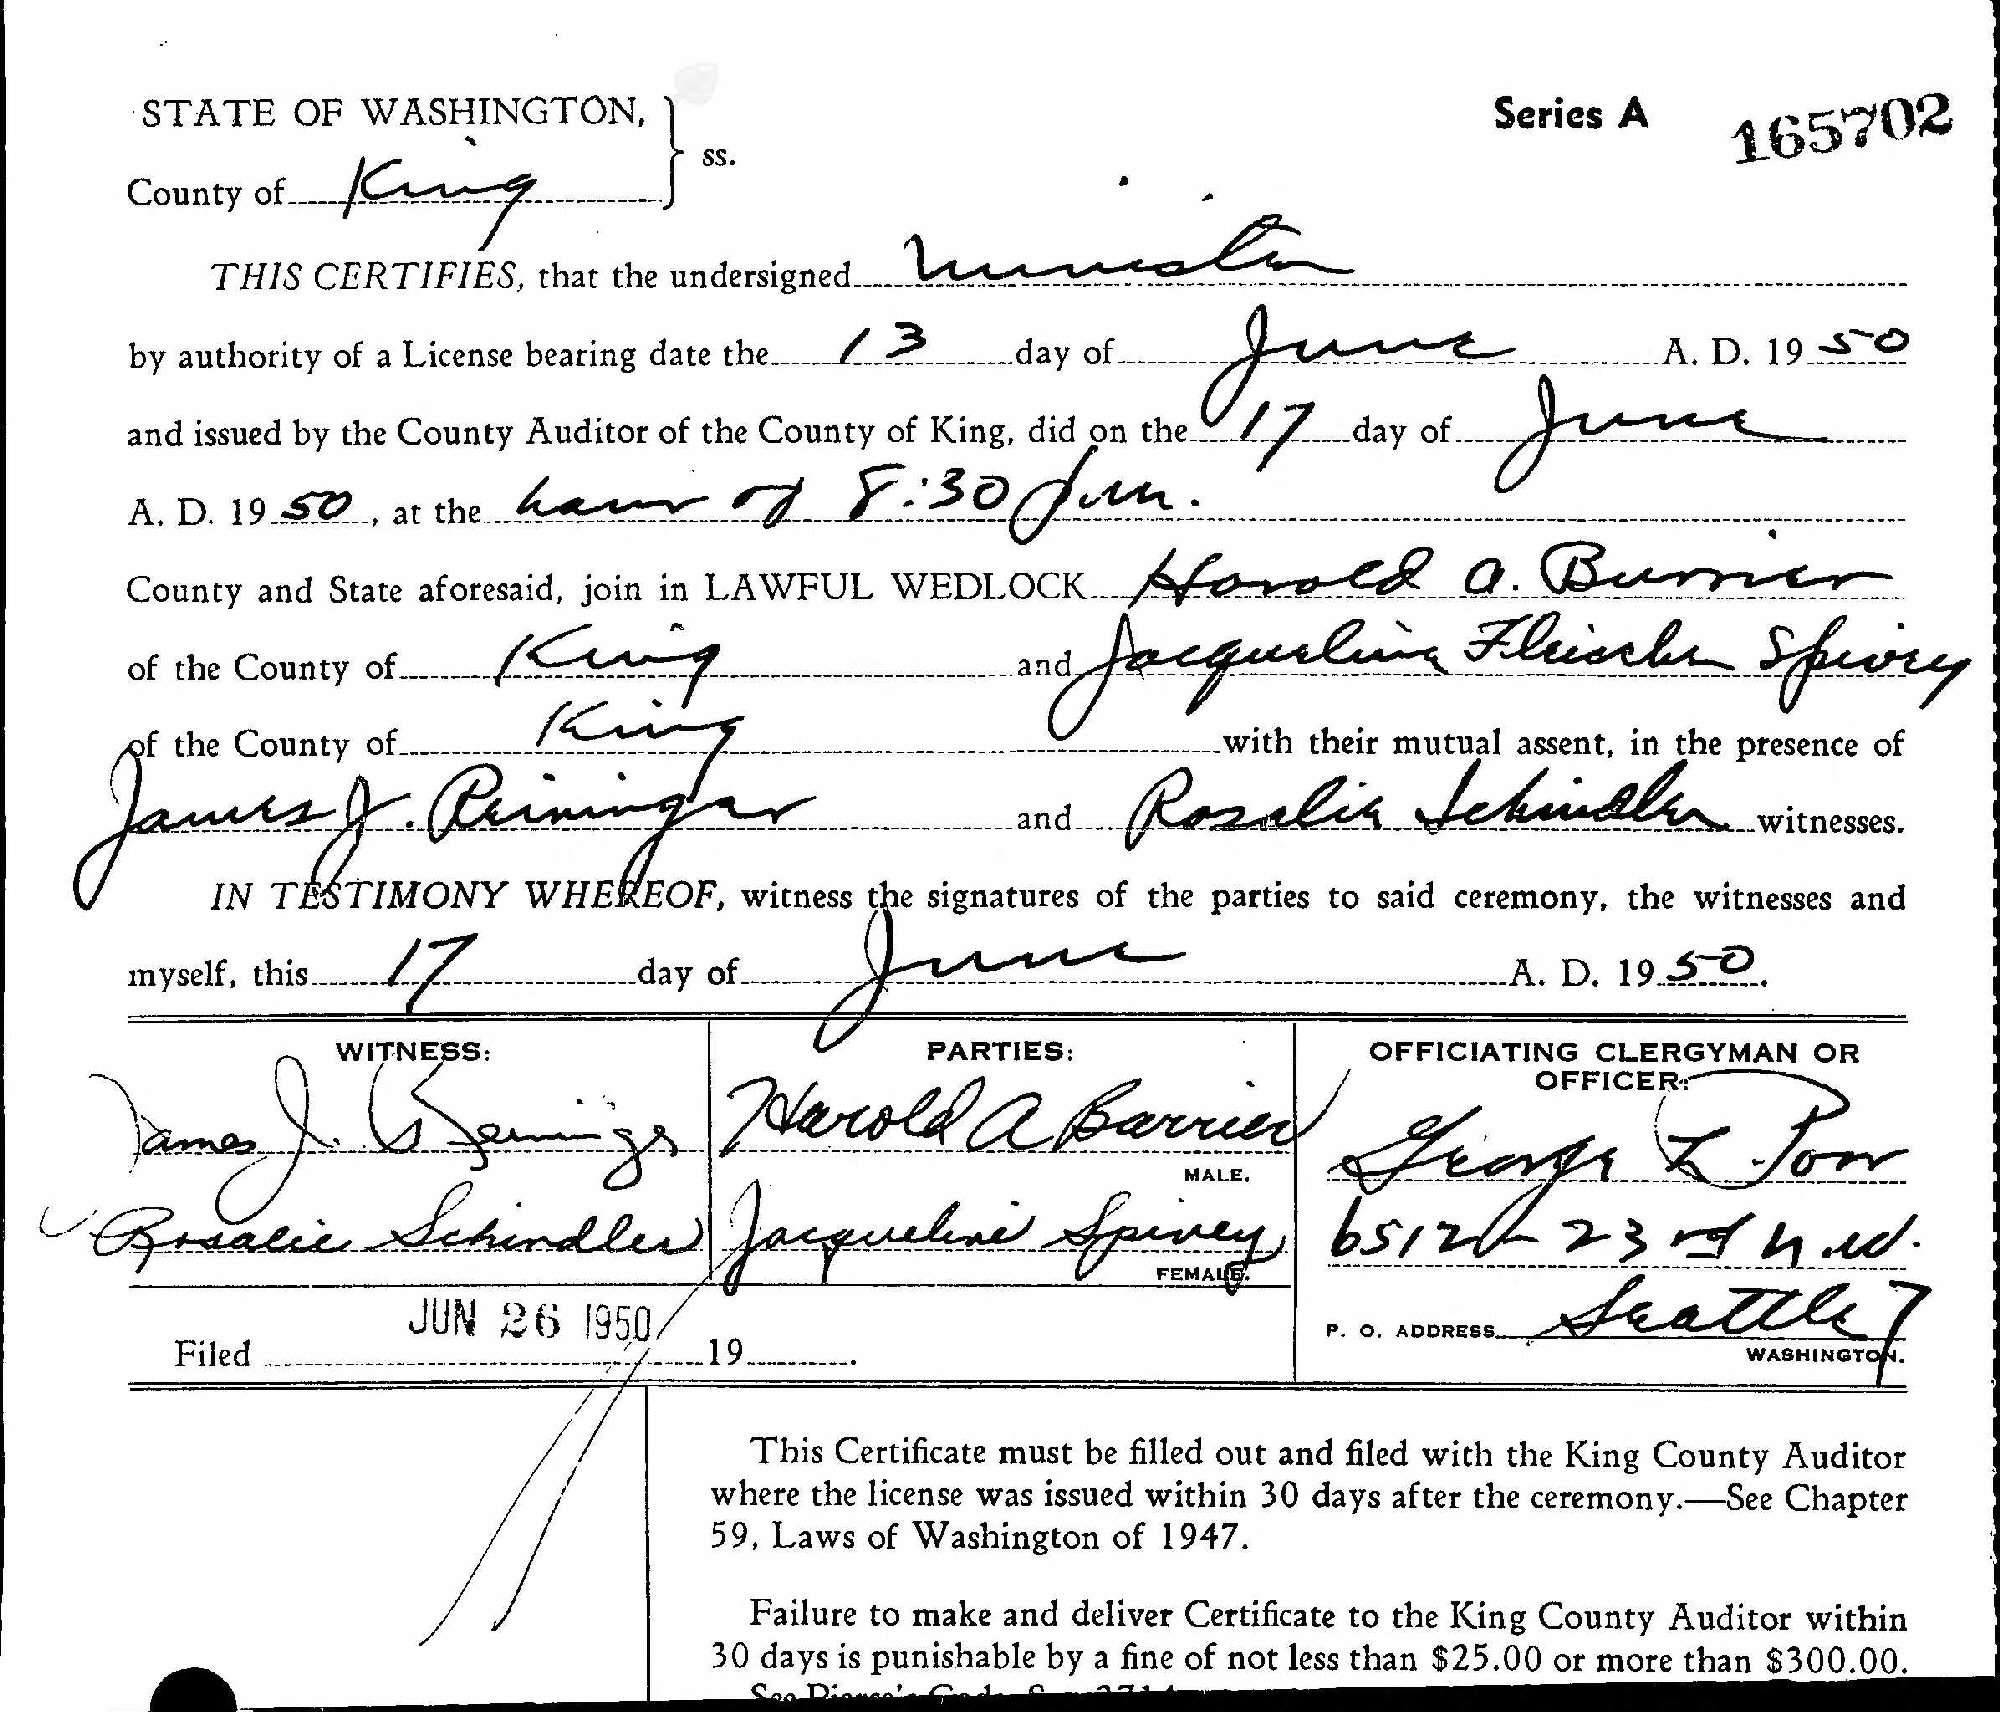 STATE OF WASHINGTON, } ss.
Series A 165702
County of King
THIS CERTIFIES, that the undersigned minister
by authority of a License bearing date the 13 day of June A. D. 19 50
and issued by the County Auditor of the County of King, did on the 17 day of June
A. D. 19 50, at the hour of 8:30 p.m.
County and State aforesaid, join in LAWFUL WEDLOCK Harold A. Burrier
of the County of King and Jacqueline Fleischer Spivey
of the County of King with their mutual assent, in the presence of
James J. Reininger and Rosalie Schindler witnesses.
IN TESTIMONY WHEREOF, witness the signatures of the parties to said ceremony, the witnesses and
myself, this 17 day of June A. D. 19 50.
WITNESS:
James J.
Rosalie Schindler
PARTIES:
Harold A Barrier
MALE.
Jacqueline Spivey
FEMALE.
OFFICIATING CLERGYMAN OR
OFFICER:
George L.
6512 23rd N.W.
P. O. ADDRESS Seattle 7
WASHINGTON.
JUN 26 1950
Filed 19
This Certificate must be filled out and filed with the King County Auditor
where the license was issued within 30 days after the ceremony.—See Chapter
59, Laws of Washington of 1947.
Failure to make and deliver Certificate to the King County Auditor within
30 days is punishable by a fine of not less than $25.00 or more than $300.00.
See Pierce's Code